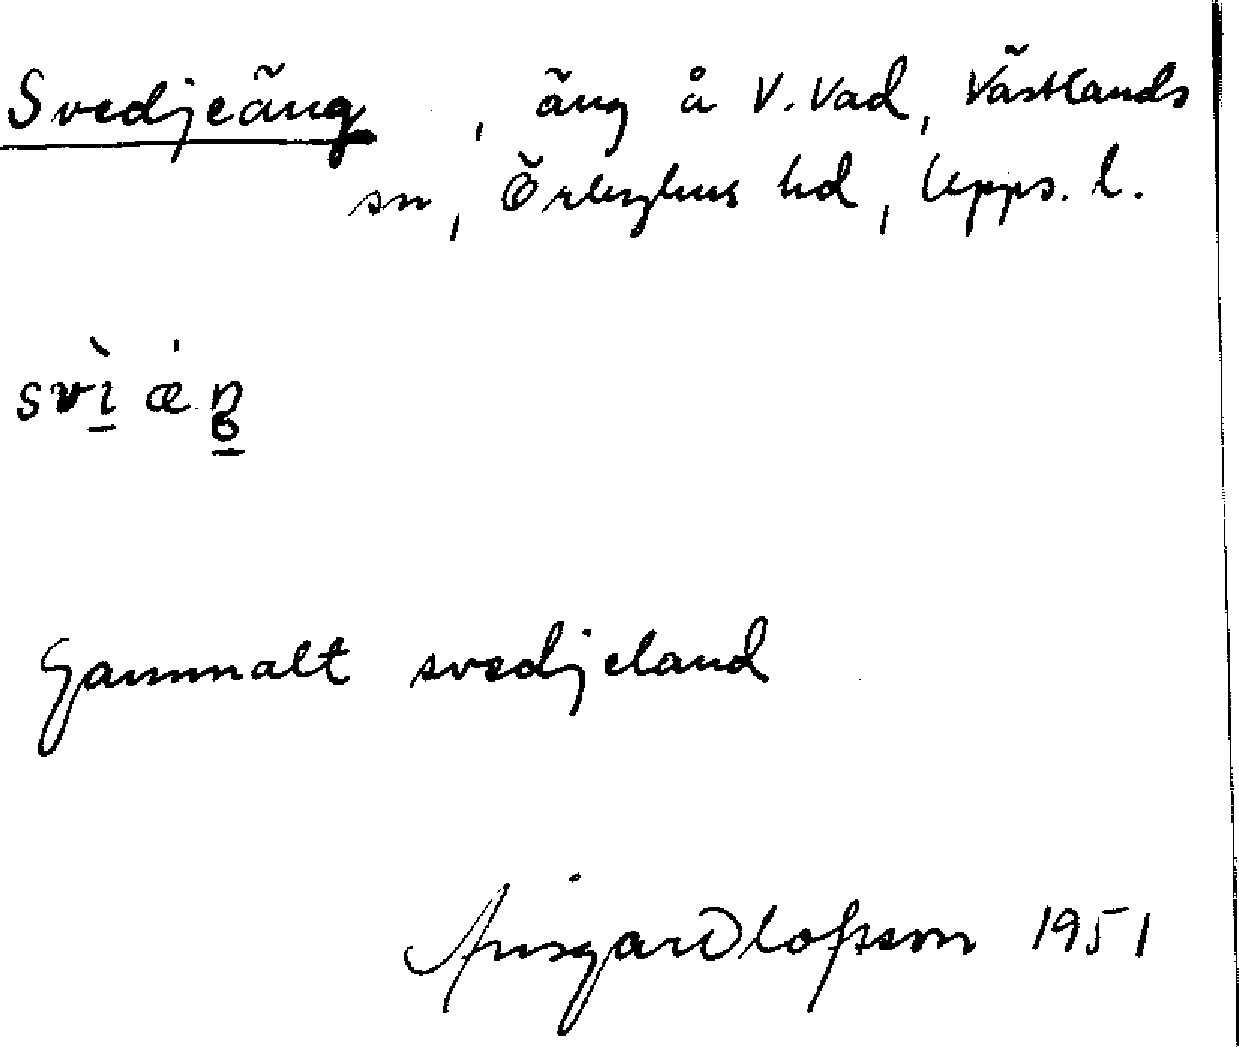 Svedjeäng , äng å V. Vad, Västlands
sn, Örbyhus hd, Upps. l.
Gammalt svedjeland
Ansgar Olofsson 1951